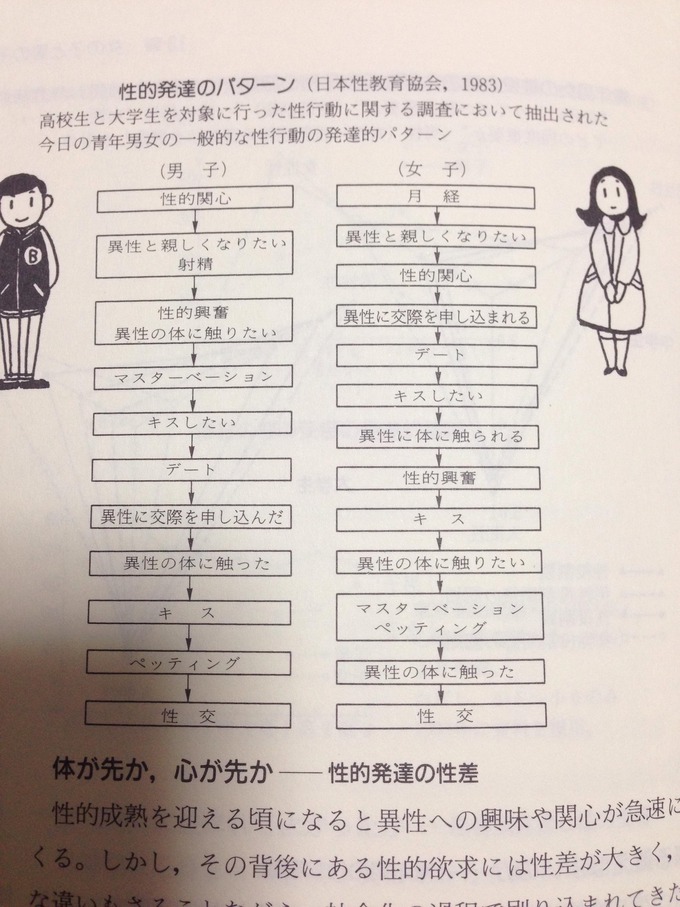 性的発達のパターン（日本性教育協会，1983）
高校生と大学生を対象に行った性行動に関する調査において抽出された
今日の青年男女の一般的な性行動の発達的パターン
（男　子）
性的関心
異性と親しくなりたい
射精
性的興奮
異性の体に触りたい
マスターベーション
キスしたい
デート
異性に交際を申し込んだ
異性の体に触った
キ　ス
ペッティング
性　交
（女　子）
月　経
異性と親しくなりたい
性的関心
異性に交際を申し込まれる
デート
キスしたい
異性に体に触られる
性的興奮
キ　ス
異性の体に触りたい
マスターベーション
ペッティング
異性の体に触った
性　交
B
体が先か，心が先か ── 性的発達の性差
性的成熟を迎える頃になると異性への興味や関心が急速に
くる。しかし，その背後にある性的欲求には性差が大きく，
な違いもさることながら